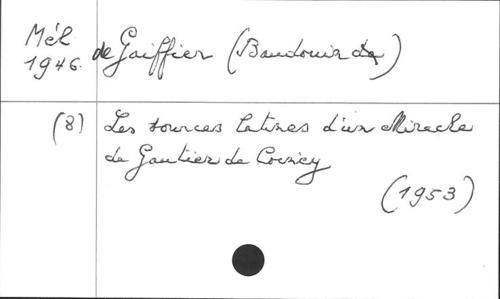 Mél de Gaiffier (Baudouin de)
1946.
(8) Les sources latines d'un Miracle
de Gautier de Coincy
(1953)